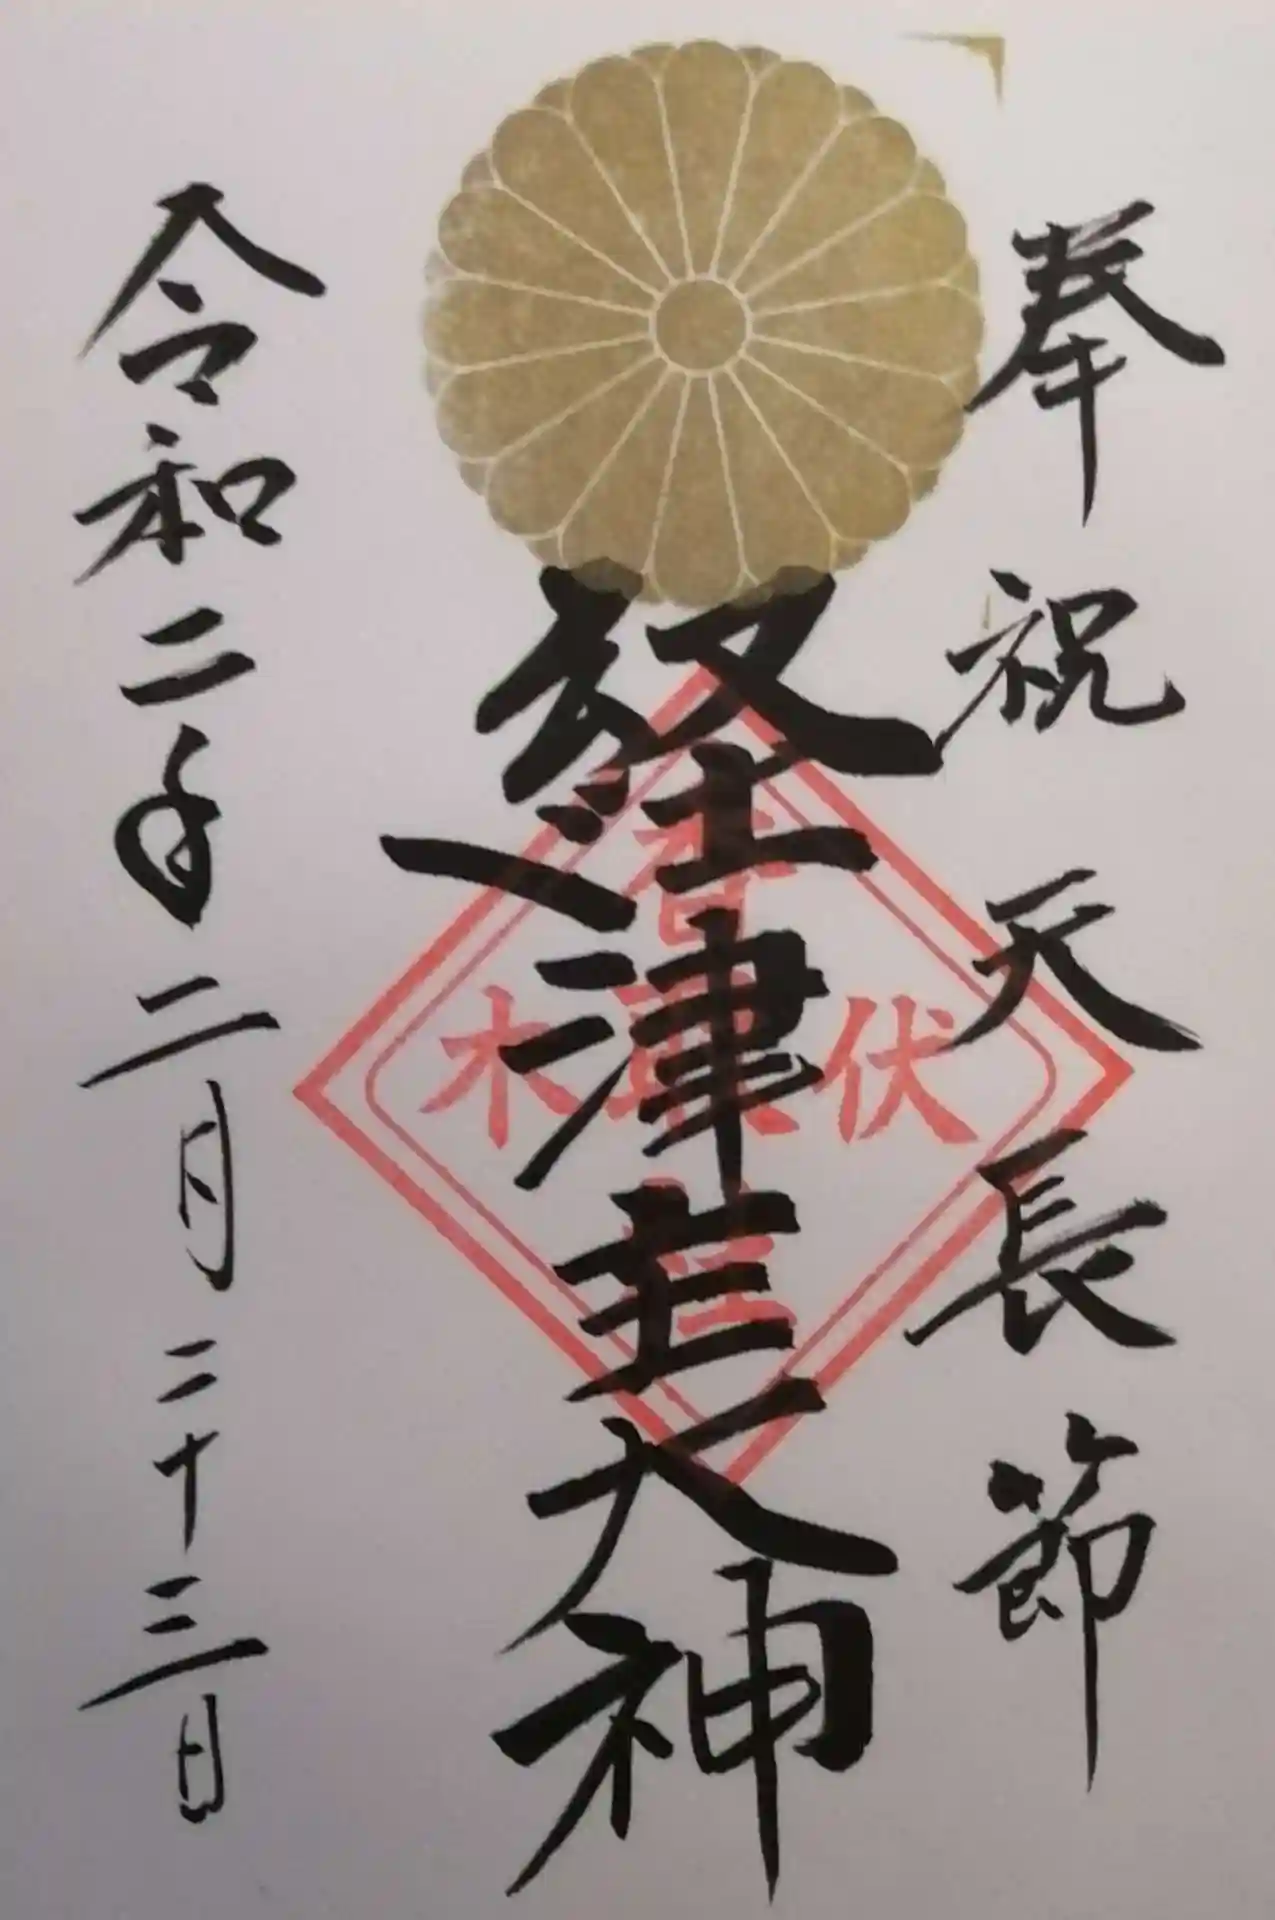 奉祝天長節
経津主大神
伏木
令和二年二月二十三日